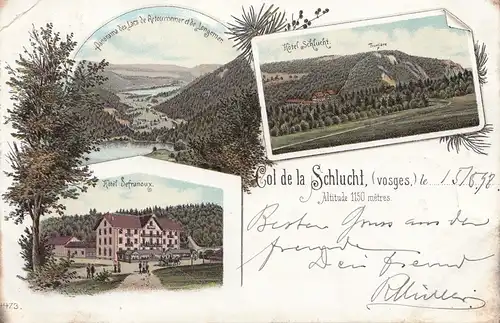 Panorama des Lacs de Retournemer et de Longemer.
Hôtel Schlucht.
Hôtel Defranoux.
Col de la Schlucht, (vosges.) le 15/6 97
Altitude 1150 mètres.
Besten Gruss aus der
Dein Freund